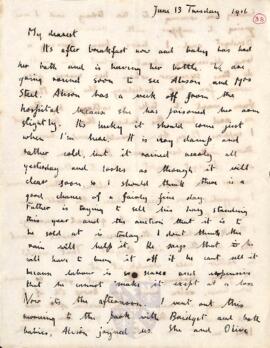 June 13 Tuesday 1916
38
My dearest
It's after breakfast now and baby has had
her bath and is having her bottle. We are
going round soon to see Alison and Mrs
Steel. Alison has a week off from the
hospital because she has poisoned her arm
slightly. It's lucky it should come just
when I'm here. It is very damp and
rather cold, but it rained nearly all
yesterday and looks as though it will
clear soon so I should think there is a
good chance of a fairly fine day.
Father is trying to sell his hay standing
this year and the auction that it is to
be sold at is today. I don't think the
rain will help it. He says that he
will have to burn it off if he can't sell it
because labour is so scarce and expensive
that he cannot make it except at a loss
Now it's the afternoon. I went out this
morning to the bank with Bridget and both
babies. Alison joined us. She and Olive